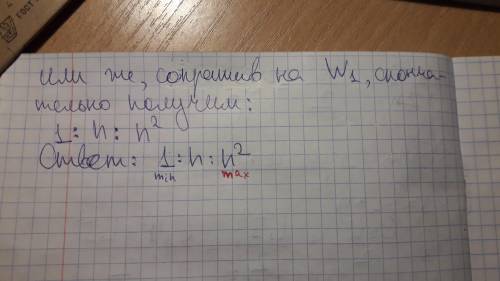 или же, сократив на W₁, оконча-
тельно получим:
1 : n : n²
Ответ: 1 : n : n²
min max
ГОСТ